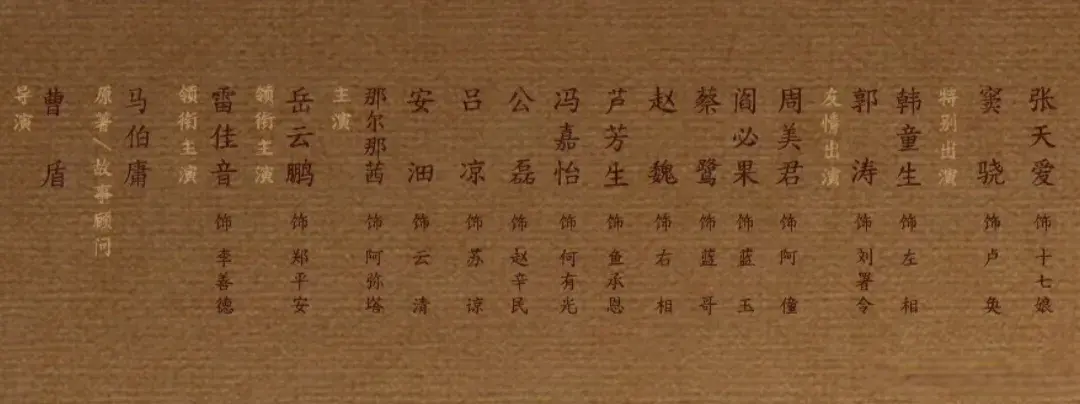 导演
曹盾
原著/故事顾问
马伯庸
领衔主演
雷佳音 饰 李善德
领衔主演
岳云鹏 饰 郑平安
主演
那尔那茜 饰 阿弥塔
安沺 饰 云清
吕凉 饰 苏谅
公磊 饰 赵辛民
冯嘉怡 饰 何有光
芦芳生 饰 鱼承恩
赵魏 饰 右相
蔡鹭 饰 蓝哥
阎必果 饰 蓝玉
周美君 饰 阿僮
友情出演
郭涛 饰 刘署令
韩童生 饰 左相
特别出演
窦骁 饰 卢奂
张天爱 饰 十七娘